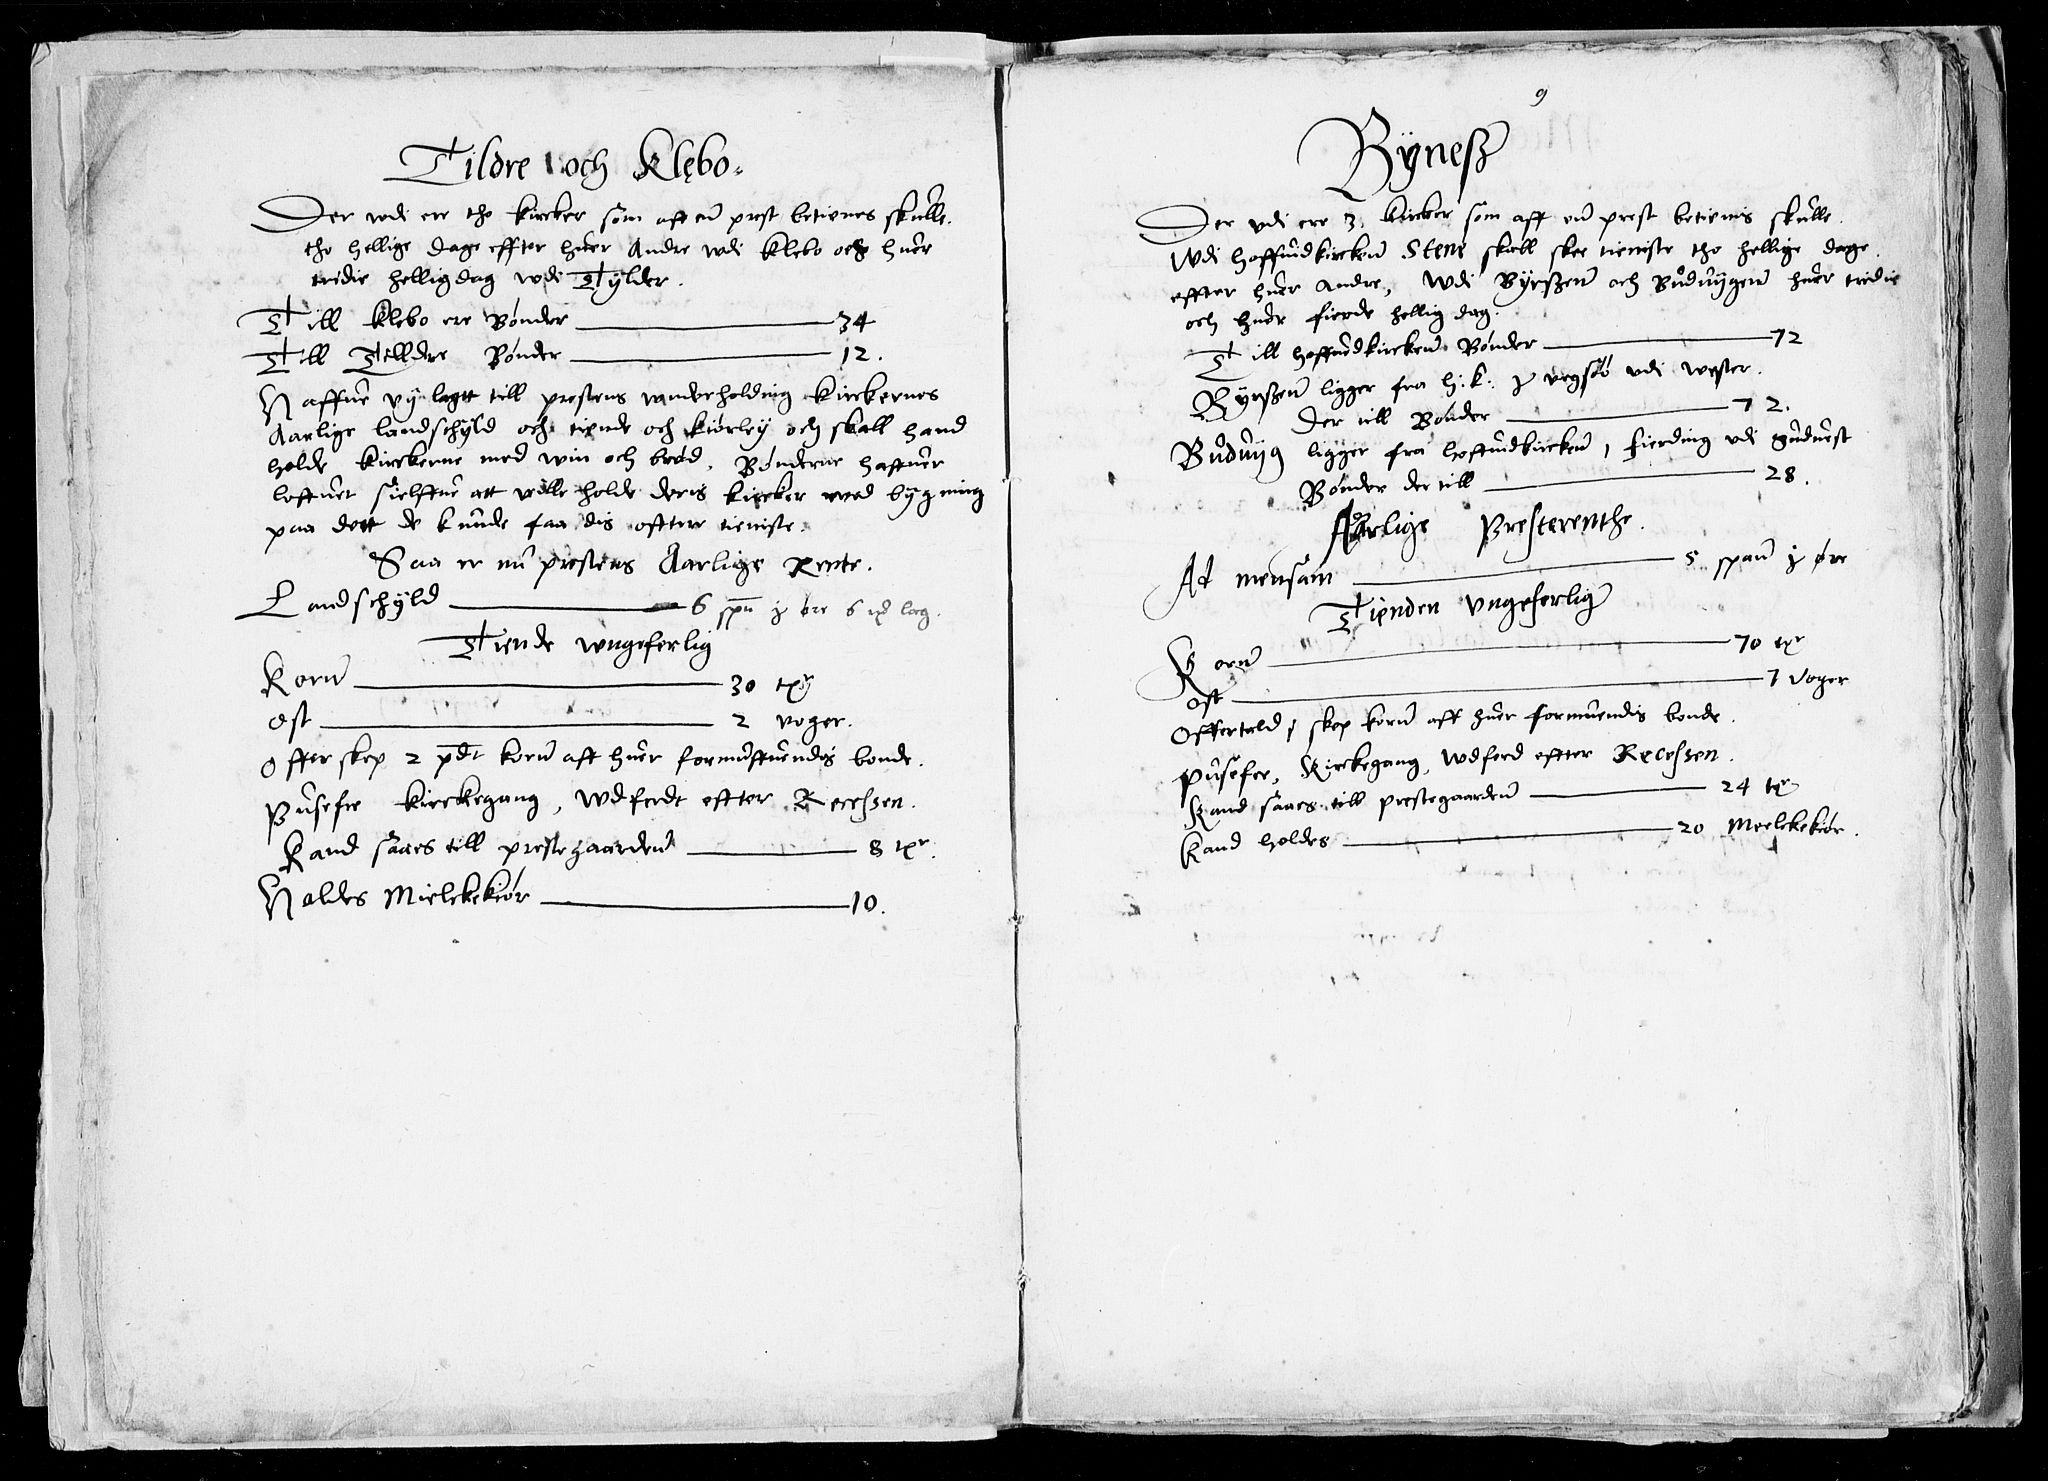 Tildre och Klebo.
Der wdi ere tho kircker som aff en prest betienes skulle.
tho hellige dage effter huer Andre wdi Klebo och huer
tridie hellig dag wdi Tylder.
Till Klebo ere Bønder 34
Till Tilldre Bønder 12.
Haffue vy lagtt till prestens vnderholding Kirckernes
Aarlige landschyld och tiende och kiørley och skall hand
holde kirckerne med win och brød. Bønderne haffuer
loffuet sielffue att wille holde deris kircker wed bygning
paa dett de kunde faa dis offtere tieniste.
Saa er nu prestens Aarlige Rente.
Landschyld 6 spn j øre 6 log.
Tiende wngeferlig
Korn 30
Ost 2 woger.
Offer skep 2 pdt korn aff huer formuffuendis bonde.
Pusefee kirckegang, Wdferdt effter Recessen.
Kand saaes till prestegaarden 8
Holdes Mielckekiør 10.
9
Byness
Der vdi ere 3. kircker som aff en prest betienis skulle.
Wdi hoffuidkircken Stene skall skee tieniste tho hellige dage
effter huer andre, Wdi Byrszen och Buduiigen huer tridie
och huer fierde hellig dag.
Till hoffuidkircken Bønder 72
Byrszen ligger fra h: k: j vegsøø vdi wester.
Der till Bønder 72.
Buduiig ligger fra hoffuidkircken 1 fierding vdi suduest
Bønder der till 28.
Aarlige Presterenthe.
Ad mensam 5 span j øre
Tienden vngeferlig
Korn 70
Ost 7 Voger
Offertold 1 skep korn aff huer formuendis bonde.
Pusefee, Kirckegang, Wdferd effter Recessen.
Kand saaes till prestegaarden 24
Kand holdes 20 Mielckekiør.